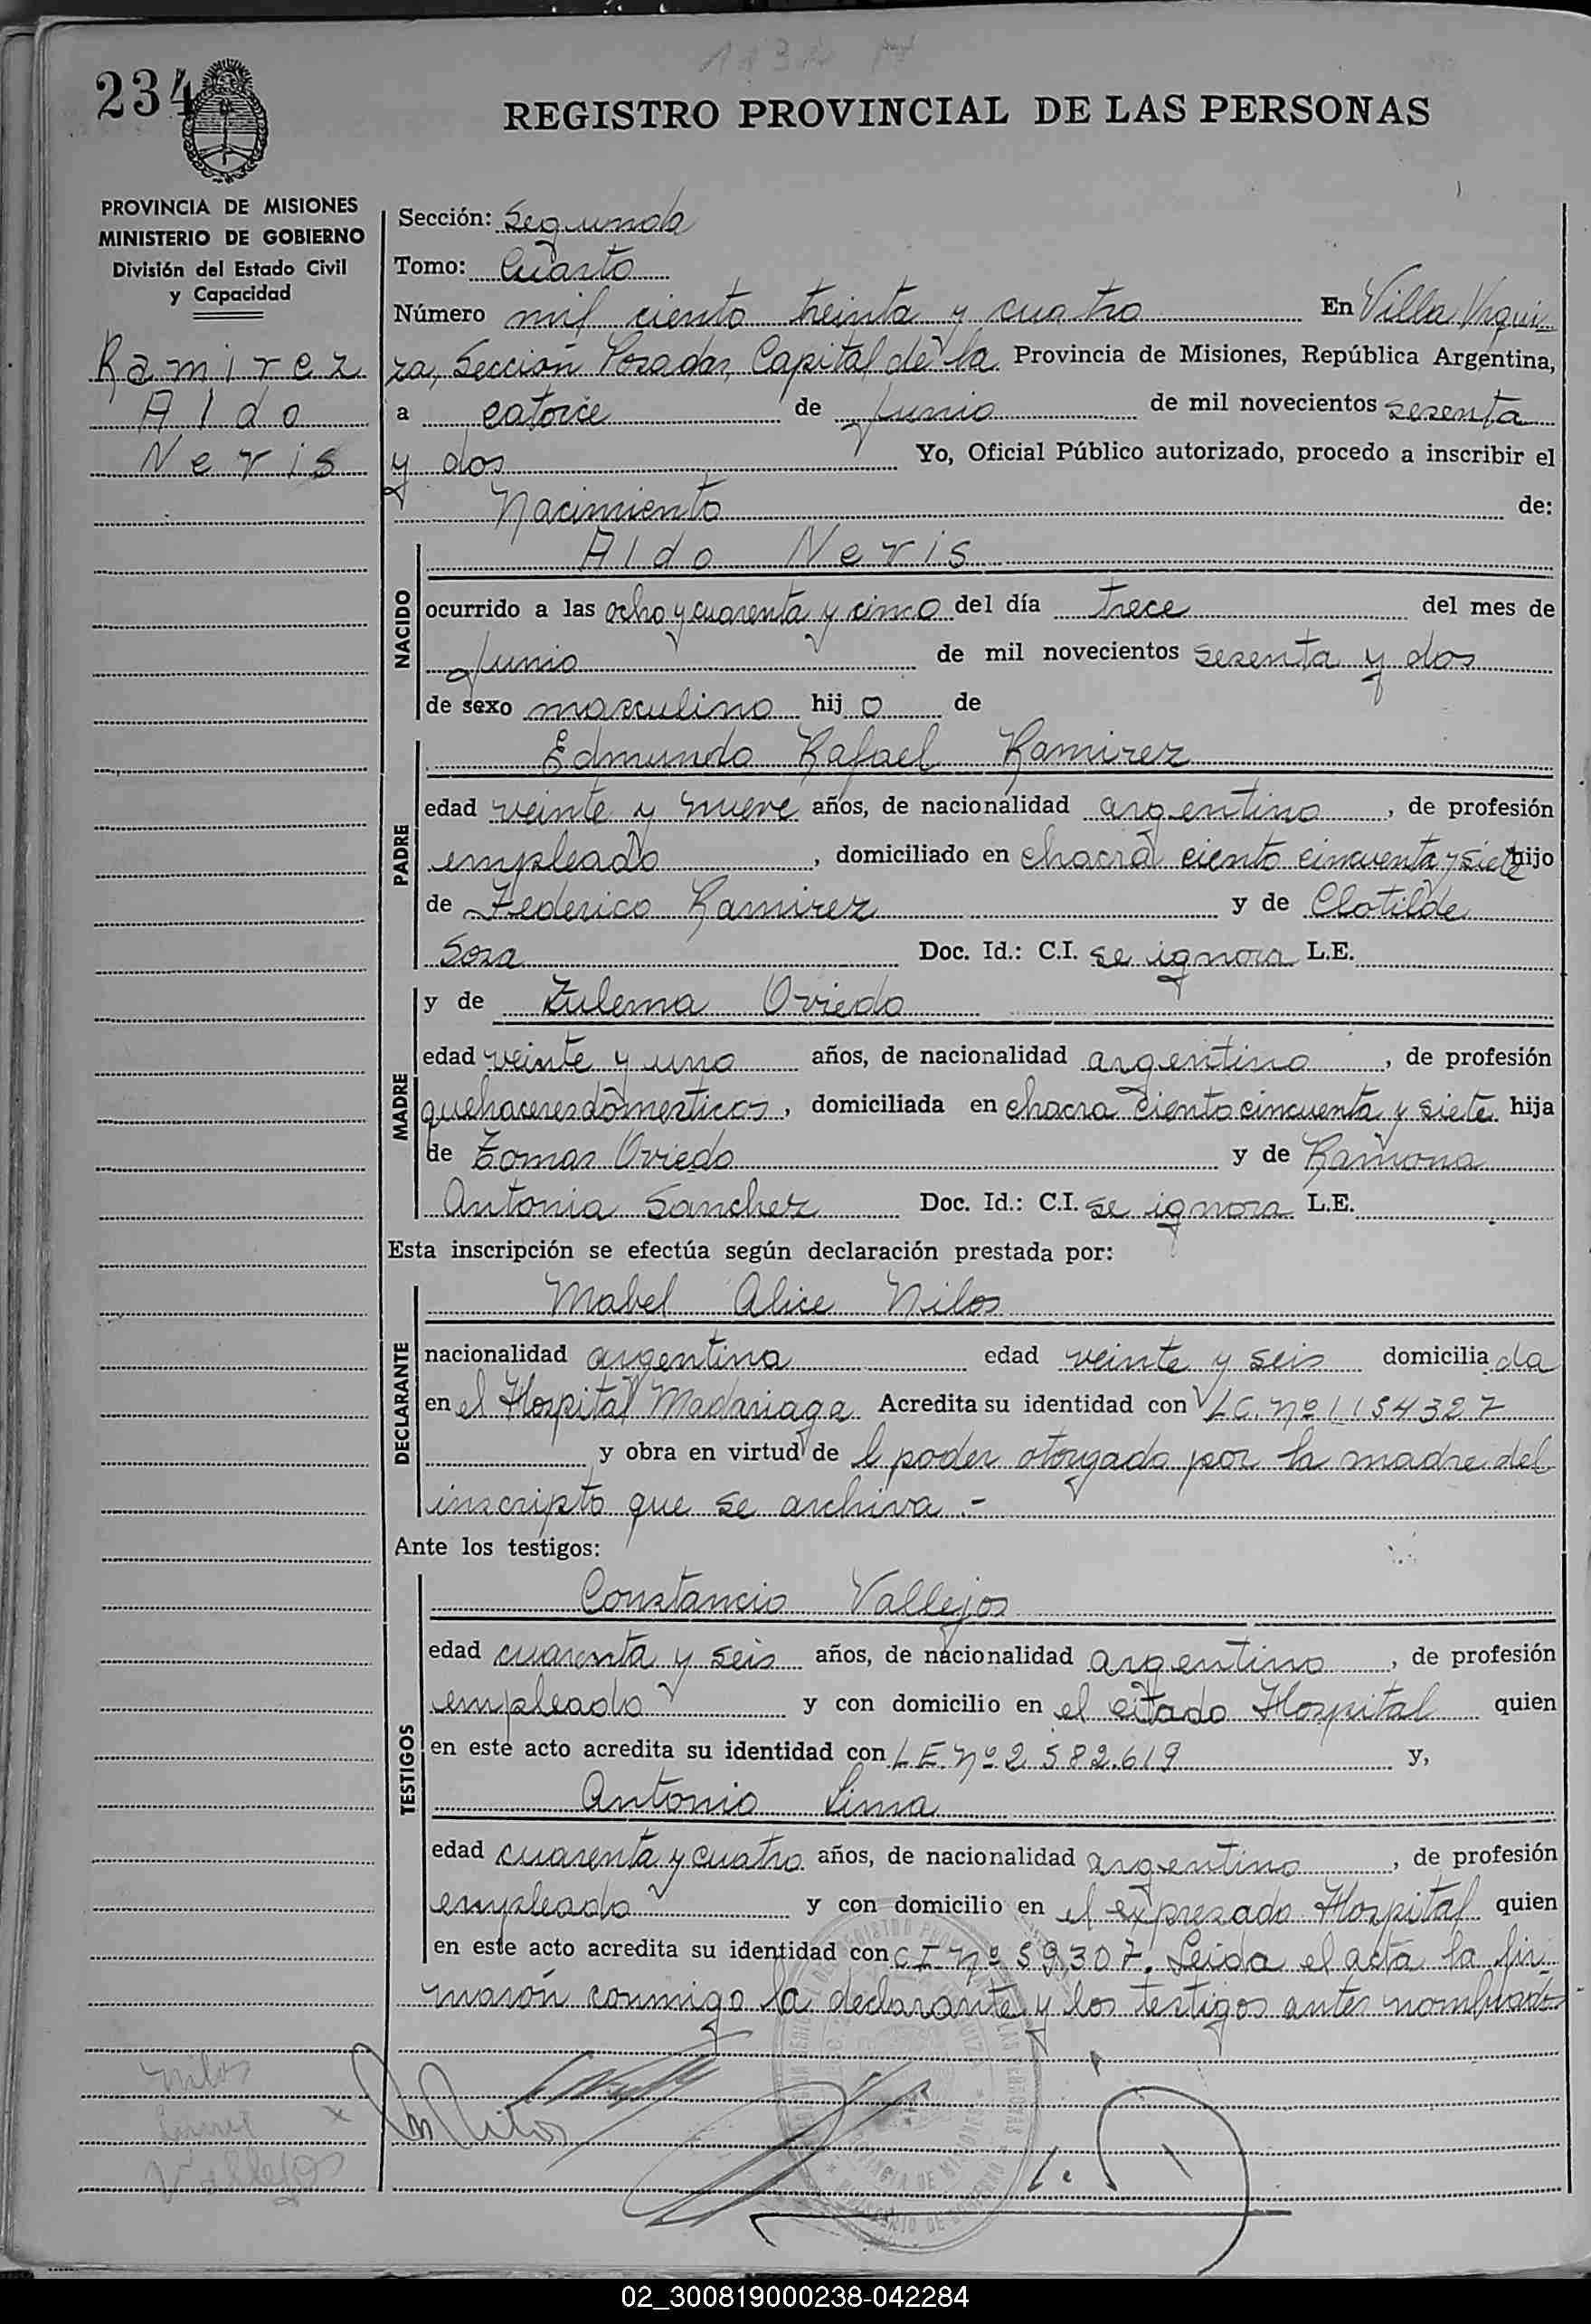 1134 N
234
REGISTRO PROVINCIAL DE LAS PERSONAS
PROVINCIA DE MISIONES
MINISTERIO DE GOBIERNO
División del Estado Civil
y Capacidad
Ramirez
Aldo
Neris
Sección: Segunda
Tomo: Cuarto
Número mil ciento treinta y cuatro En Villa Urqui
za, Sección Posadas, Capital de la Provincia de Misiones, República Argentina,
a catorce de Junio de mil novecientos sesenta
y dos Yo, Oficial Público autorizado, procedo a inscribir el
Nacimiento de:
NACIDO
Aldo Neris
ocurrido a las ocho y cuarenta y cinco del día trece del mes de
Junio de mil novecientos sesenta y dos
de sexo masculino hijo de
PADRE
Edmundo Rafael Ramirez
edad veinte y nueve años, de nacionalidad argentino, de profesión
empleado, domiciliado en chacra ciento cincuenta y siete hijo
de Federico Ramirez y de Clotilde
Sosa Doc. Id.: C.I. se ignora L.E.
MADRE
y de Zulema Oviedo
edad veinte y uno años, de nacionalidad argentina, de profesión
quehaceres domesticos, domiciliada en chacra ciento cincuenta y siete hija
de Tomas Oviedo y de Ramona
Antonia Sanchez Doc. Id.: C.I. se ignora L.E.
Esta inscripción se efectúa según declaración prestada por:
DECLARANTE
Mabel Alice Nilos
nacionalidad argentina edad veinte y seis domiciliada
en el Hospital Madariaga Acredita su identidad con LC. Nº 1.154327
y obra en virtud de l poder otorgado por la madre del
inscripto que se archiva.-
Ante los testigos:
TESTIGOS
Constancio Vallejos
edad cuarenta y seis años, de nacionalidad argentino, de profesión
empleado y con domicilio en el citado Hospital quien
en este acto acredita su identidad con LE. Nº 2.582.619 y,
Antonio Lima
edad cuarenta y cuatro años, de nacionalidad argentino, de profesión
empleado y con domicilio en el expresado Hospital quien
en este acto acredita su identidad con CI Nº 59.307. Leida el acta la fir
maron conmigo la declarante y los testigos antes nombrados
Nilos
Vallejos
M Nilos
02_300819000238-042284